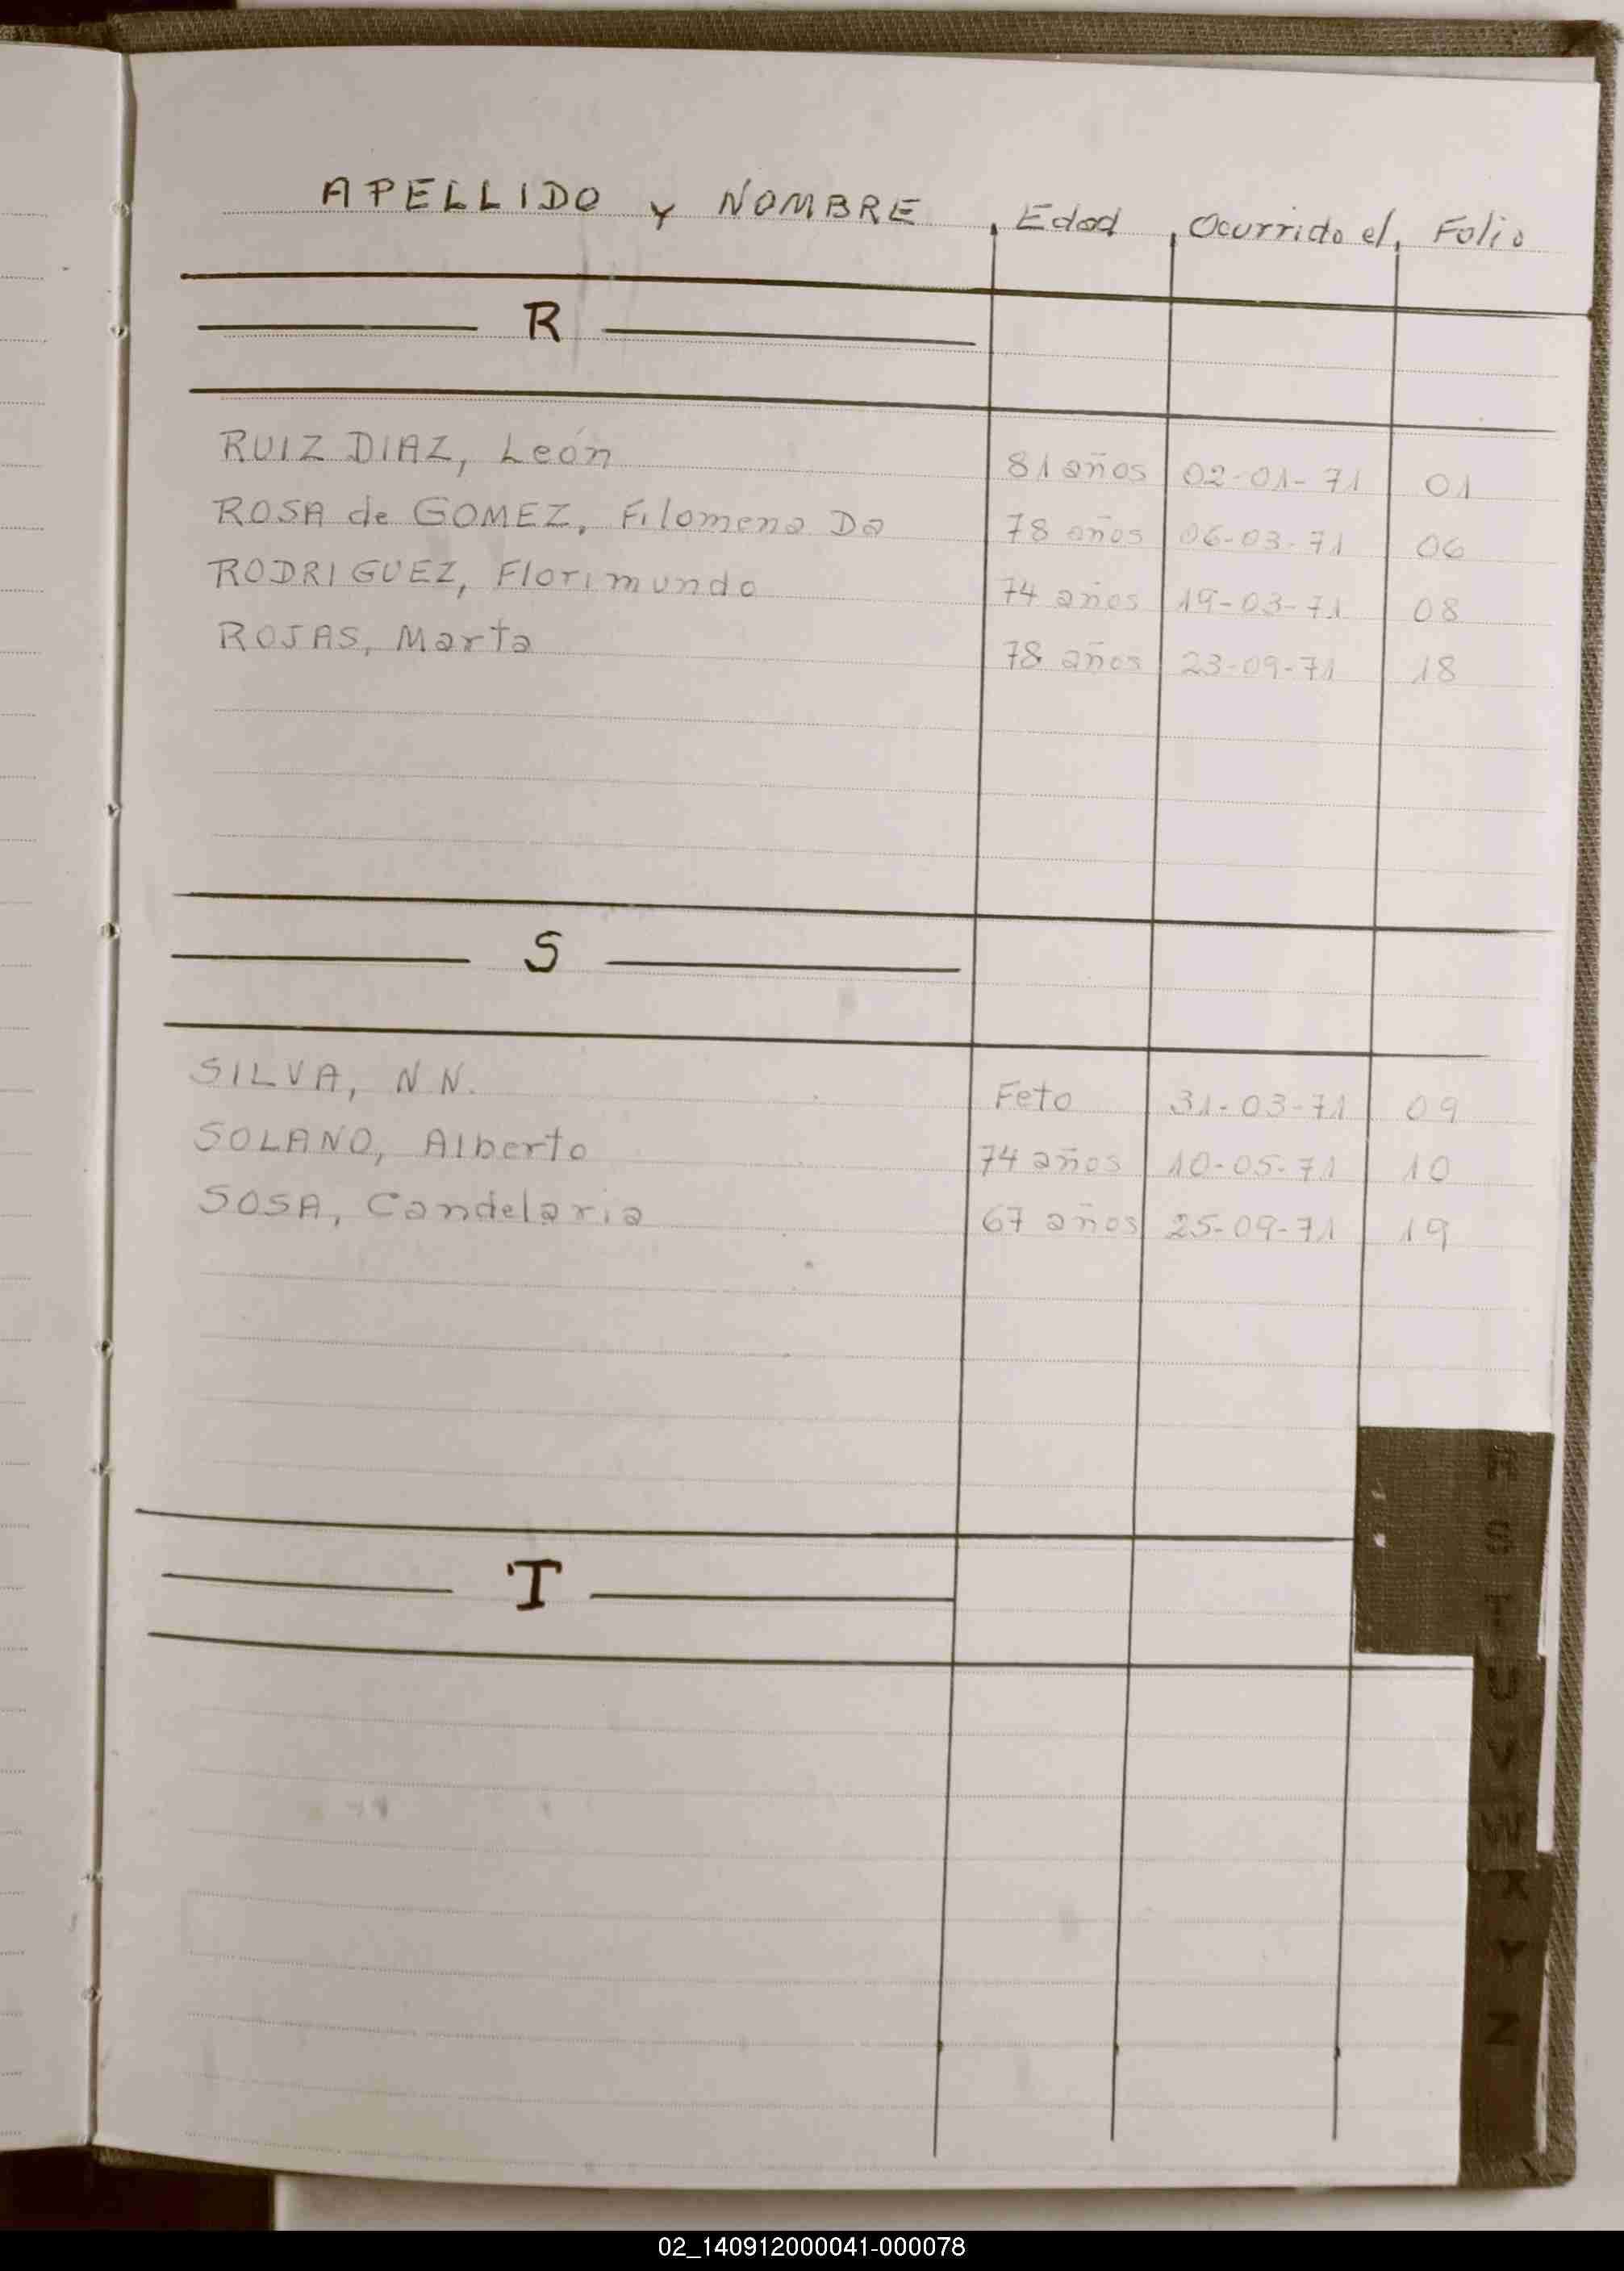 APELLIDO y NOMBRE Edad Ocurrido el Folio
R
RUIZ DIAZ, León 81 años 02-01-71 01
ROSA de GOMEZ, Filomena Da 78 años 06-03-71 06
RODRIGUEZ, Florimundo 74 años 19-03-71 08
ROJAS, Marta 78 años 23-09-71 18
S
SILVA, N N. Feto 31-03-71 09
SOLANO, Alberto 74 años 10-05-71 10
SOSA, Candelaria 67 años 25-09-71 19
T
R
S
T
U
V
W
X
Y
Z
02_140912000041-000078